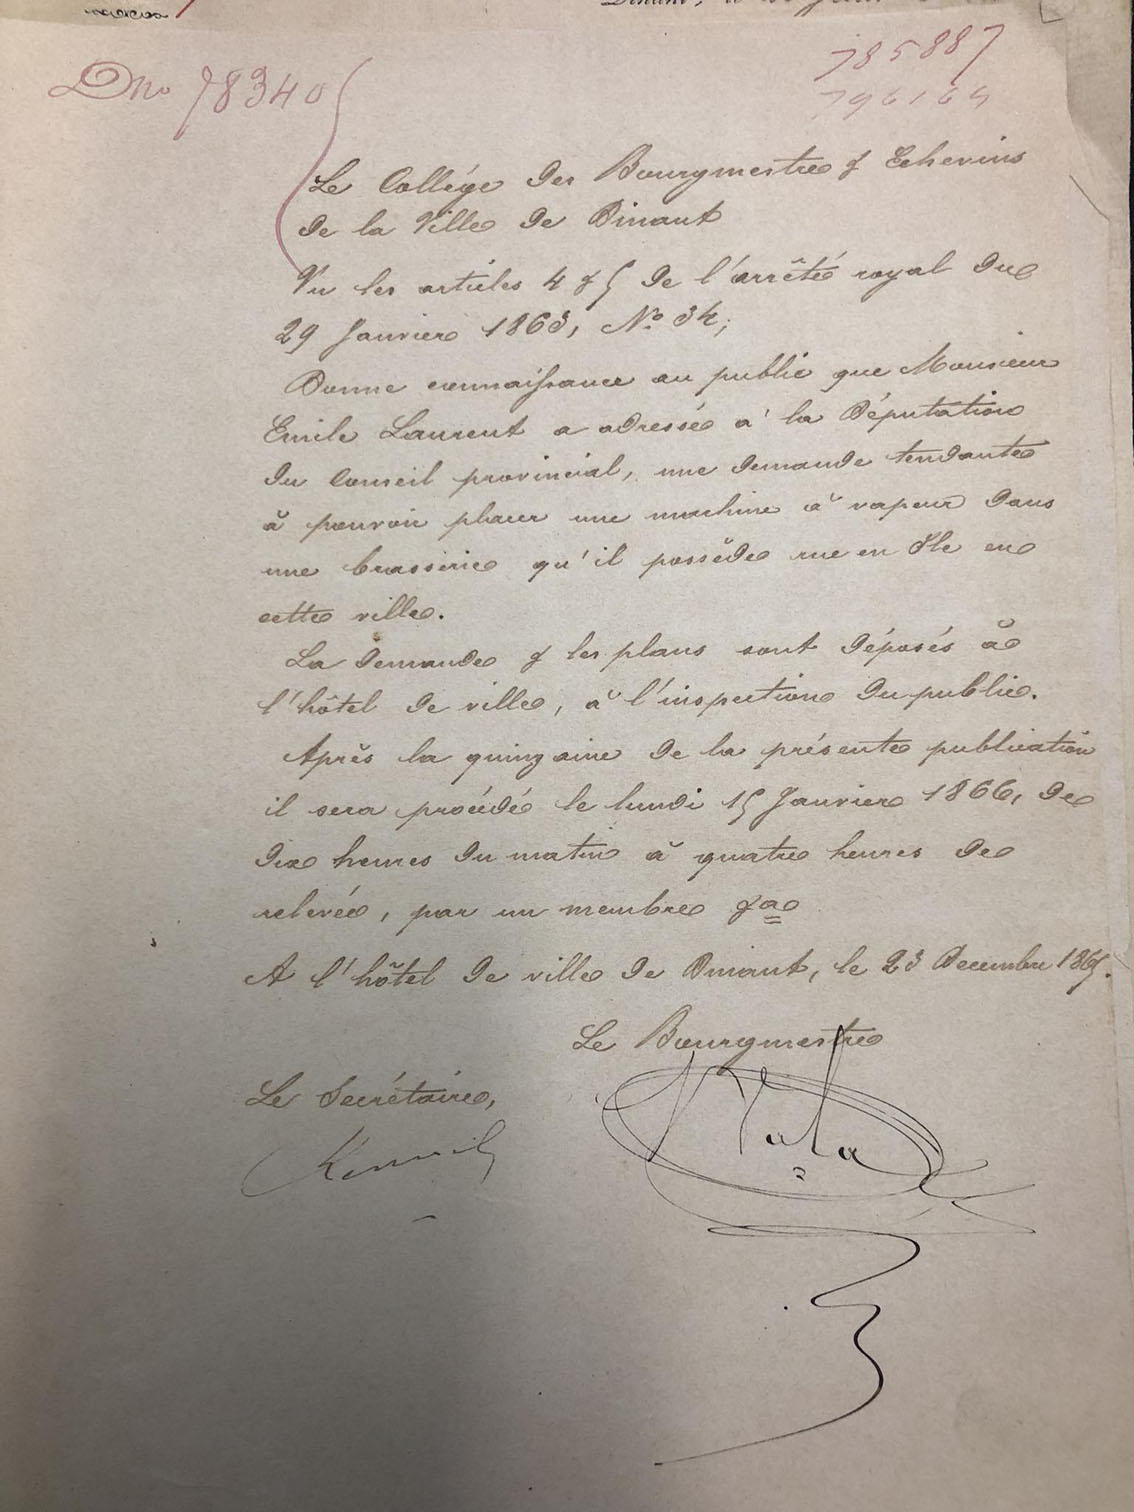 785887
796164
Dno 78340
Le Collége des Bourgmestre & Echevins
de la Ville de Dinant
Vu les articles 4 & 5 de l'arrêté royal du
29 Janvier 1863, No 34;
Donne connaissance au public que Monsieur
Emile Laurent a adressé à la Députation
du Conseil provincial, une demande tendante
à pouvoir placer une machine à vapeur dans
une brasserie qu'il possède rue en Ile en
cette ville.
La demande & les plans sont déposés à
l'hôtel de ville, à l'inspection du public.
Après la quinzaine de la présente publication
il sera procédé le lundi 15 Janvier 1866, de
dix heures du matin à quatre heures de
relevée, par un membre &a
A l'hôtel de ville de Dinant, le 23 Decembre 1865.
Le Bourgmestre
Le Secrétaire,